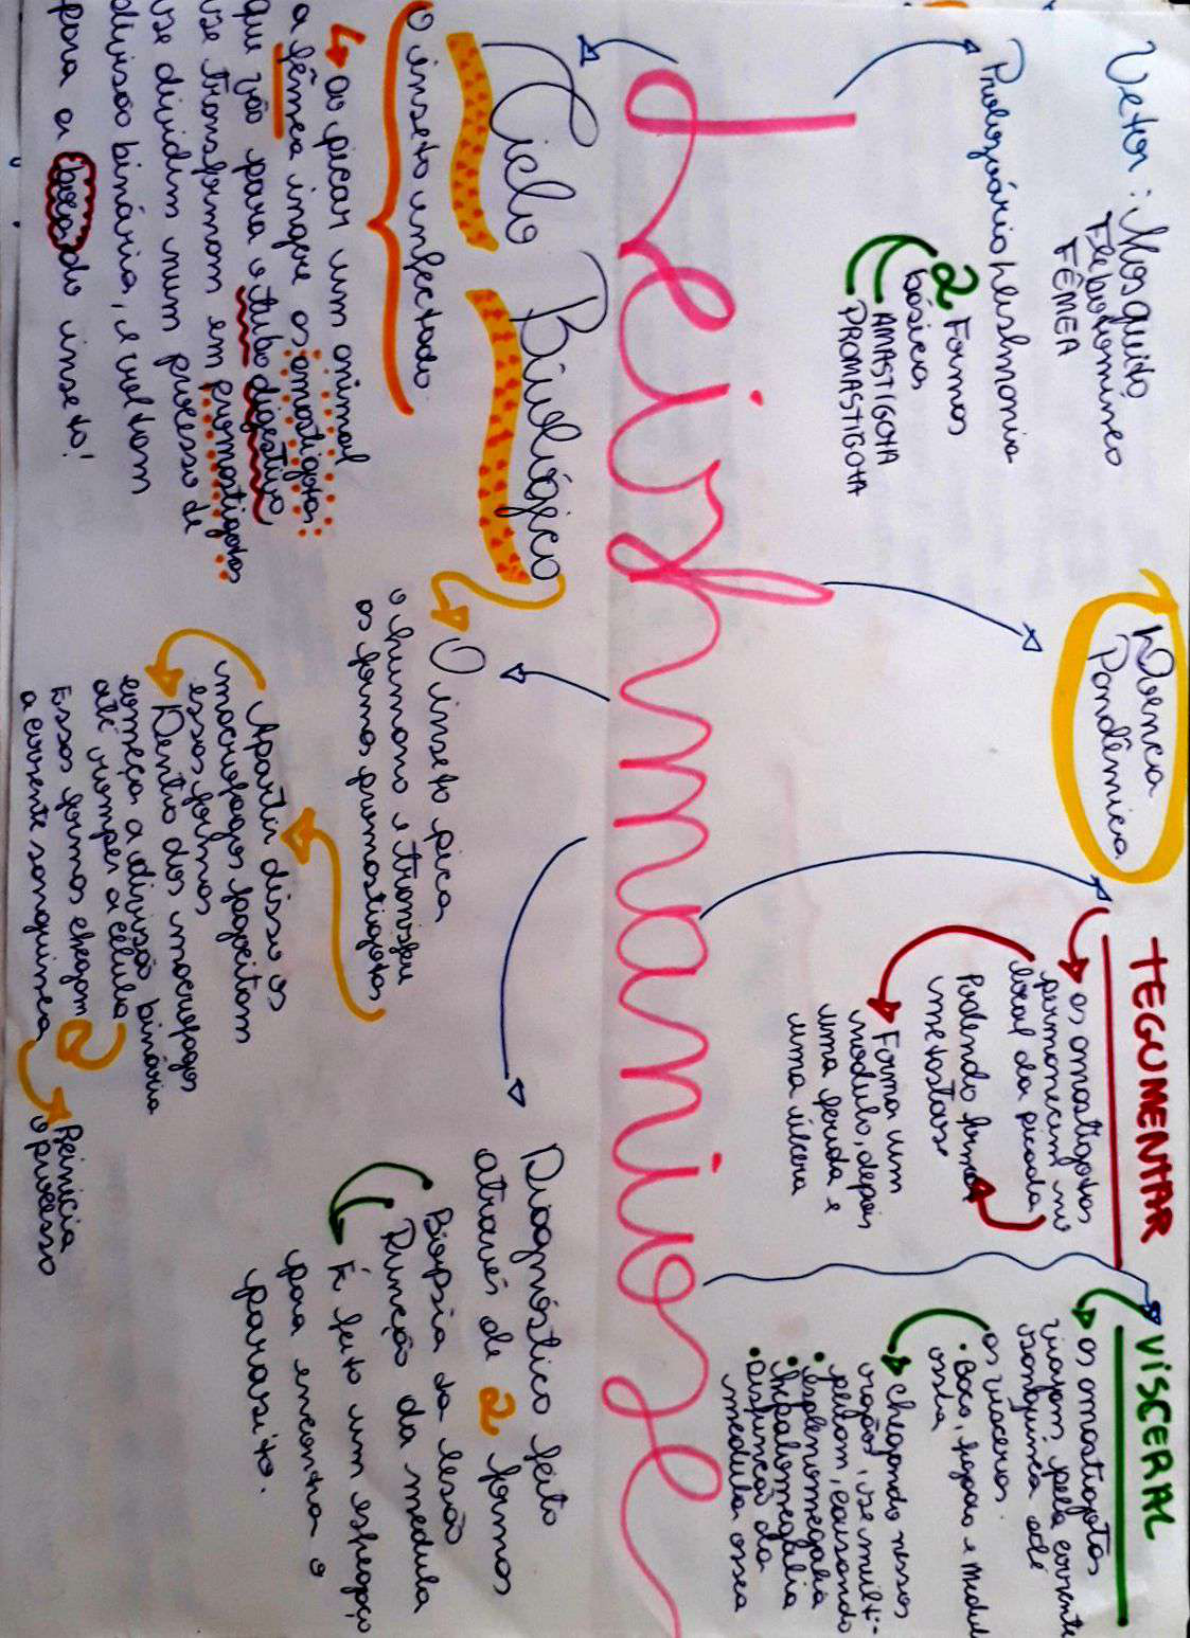 Vetor: Mosquito
Flebotomíneo
FÊMEA
Protozoário Leishmania
2 Formas
básicas
AMASTIGOTA
PROMASTIGOTA
Doença
Pandêmica
TEGUMENTAR
os amastigotas
permanecem no
local da picada
Podendo formar
metastase
Forma um
nodulo, depois
uma ferida e
uma úlcera
VISCERAL
os amastigotas
viajam pela corrente
sanguinea até
as visceras.
• Baço, figado e Medula
ossea
chegando nesses
orgãos, se multi-
plicam, causando
• esplenomegalia
• hepatomegalia
• Disfunção da
medula ossea
Leishmaniose
Ciclo Biológico
O inseto infectado
ao picar um animal
a fêmea ingere as amastigotas
que vão para o tubo digestivo
se transformam em promastigotas
se dividem num processo de
divisão binária, e voltam
para a boca do inseto!
O inseto pica
o humano e transfere
as formas promastigotas
Apartir disso os
macrofagos fagocitam
essas formas
Dentro dos macrofagos
começa a divisão binária
até romper a célula
Essas formas chegam
a corrente sanguinea
Reinicia
o processo
Diagnóstico feito
através de 2 formas
Biopsia da lesão
Punção da medula
É feito um esfregaço
para encontrar o
parasito.